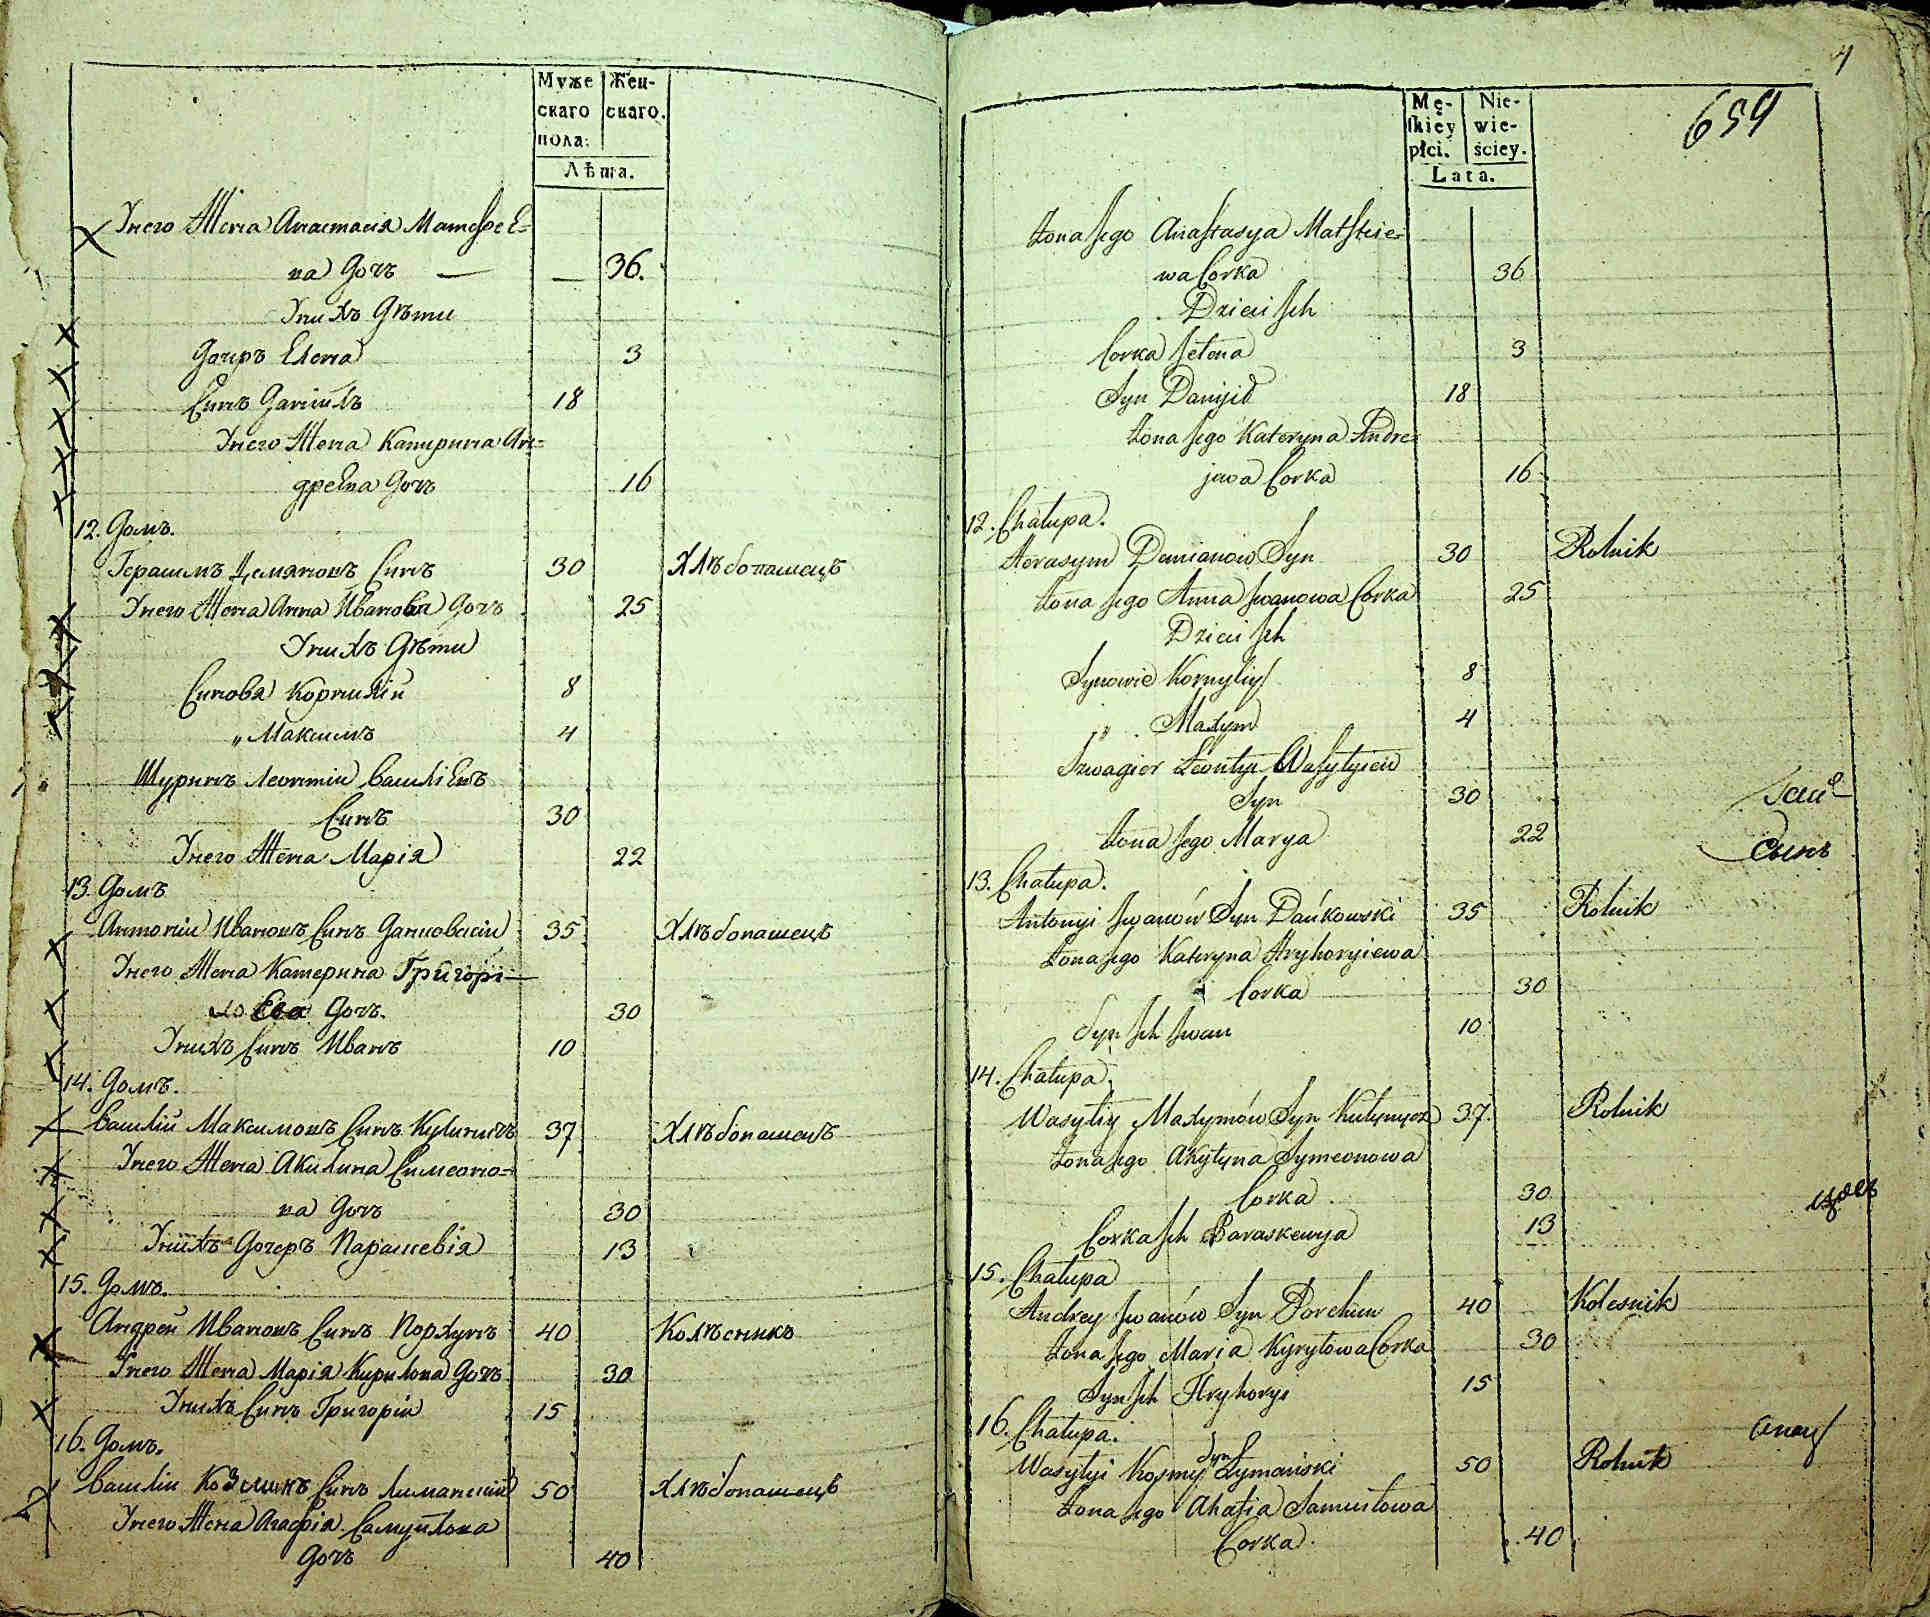 Муже
скаго
пола:
Жен-
скаго.
Лѣта.
Унего Жена Анастасія Матфее-
ва Дочь — — 36.
Унихъ Дѣти
Дочеръ Елена 3
Синъ Даніилъ 18
Унего Жена Катирина Ан-
дреева Дочь 16
12. Домъ.
Герасимъ Демяновъ Синъ 30 Хлѣбопашецъ
Унего Жена Анна Иванова Дочь 25
Унихъ Дѣти
Синовя Корнилій 8
„ Максимъ 4
Шуринъ Леонтіи Василіевъ
Синъ 30
Унего Жена Марія 22
13. Домъ
Антоніи Ивановъ Синъ Данковскіи 35 Хлѣбопашецъ
Унего Жена Катерина Григорі-
ева Дочь. 30
Унихъ Синъ Иванъ 10
14. Домъ.
Василіи Максимовъ Синъ Кулиничъ 37 Хлѣбопашецъ
Унего Жена Акилина Симеоно-
ва Дочь 30
Унихъ Дочеръ Параскевія 13
15. Домъ.
Андрей Ивановъ Синъ Порхунъ 40 Колѣсникъ
Унего Жена Марія Кирилова Дочь 30
Унихъ Синъ Григоріи 15
16. Домъ.
Василіи Козминъ Синъ Лиманскій 50 Хлѣбопашецъ
Унего Жена Агафія Самуилова
Дочь 40
4
659
Mę-
skiey
płci.
Nie-
wie-
ściey.
Lata.
Żona Jego Anastasya Matfeie-
wa Corka 36
Dzieci Ich
Corka Jelena 3
Syn Danyił 18
Żona Jego Kateryna Andre-
jewa Corka 16
12. Chałupa.
Herasym Demianow Syn 30 Rolnik
Żona Jego Anna Iwanowa Corka 25
Dzieci Ich
Synowie Kornyliy 8
„ Maxym 4
Szwagier Leontyi Wasylyiew
Syn 30
Żona Jego Marya 22
Сынъ
13. Chałupa.
Antonyi Iwanów Syn Dańkowski 35 Rolnik
Żona Jego Kateryna Hryhoryiewa
Corka 30
Syn Ich Iwan 10
14. Chałupa.
Wasyliy Maxymów Syn Kulynycz 37. Rolnik
Żona Jego Akylyna Symeonowa
Corka 30
Corka Ich Paraskewya 13
15. Chałupa
Andrey Iwanów Syn Porchun 40 Kolesnik
Żona Jego Maria Kyryłowa Corka 30
Syn Ich Hryhoryi 15
16. Chałupa.
Wasylyi Kosmy Syn Lymański 50 Rolnik
Żona Jego Ahafia Samuiłowa
Corka. 40